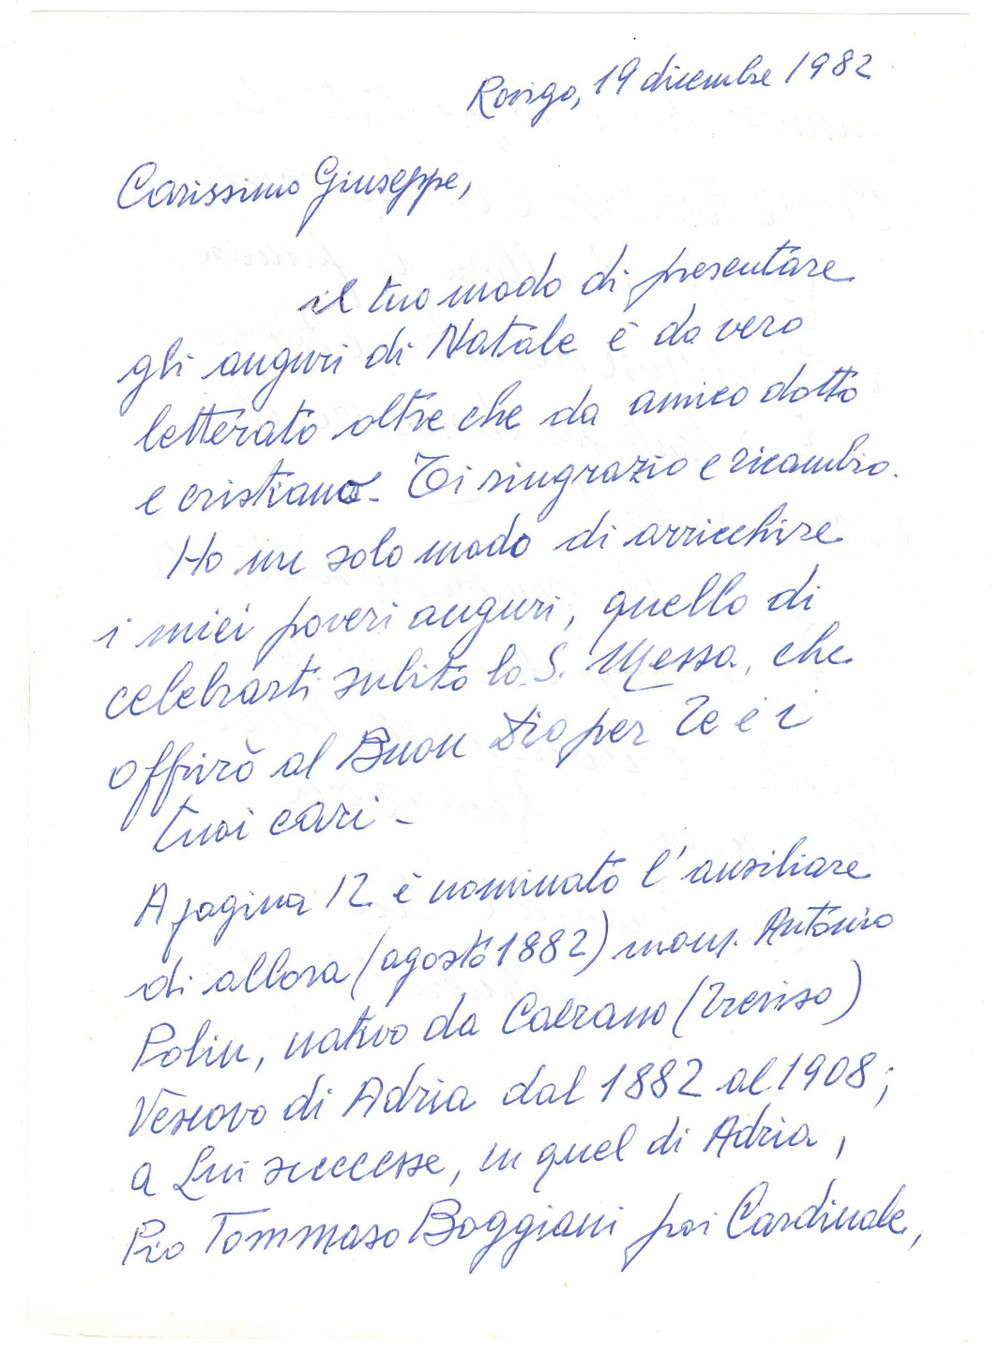 Rovigo, 19 dicembre 1982
Carissimo Giuseppe,
il tuo modo di presentare
gli auguri di Natale è da vero
letterato oltre che da amico dotto
e cristiano - Ti ringrazio e ricambio.
Ho un solo modo di arricchire
i miei poveri auguri, quello di
celebrarti subito la S. Messa, che
offrirò al Buon Dio per Te e i
tuoi cari -
A pagina 12 è nominato l'ausiliare
di allora (agosto 1882) mons. Antonio
Polin, nativo da Caerano (Treviso)
Vescovo di Adria dal 1882 al 1908;
a Lui successe, in quel di Adria,
Pio Tommaso Boggiani poi Cardinale,